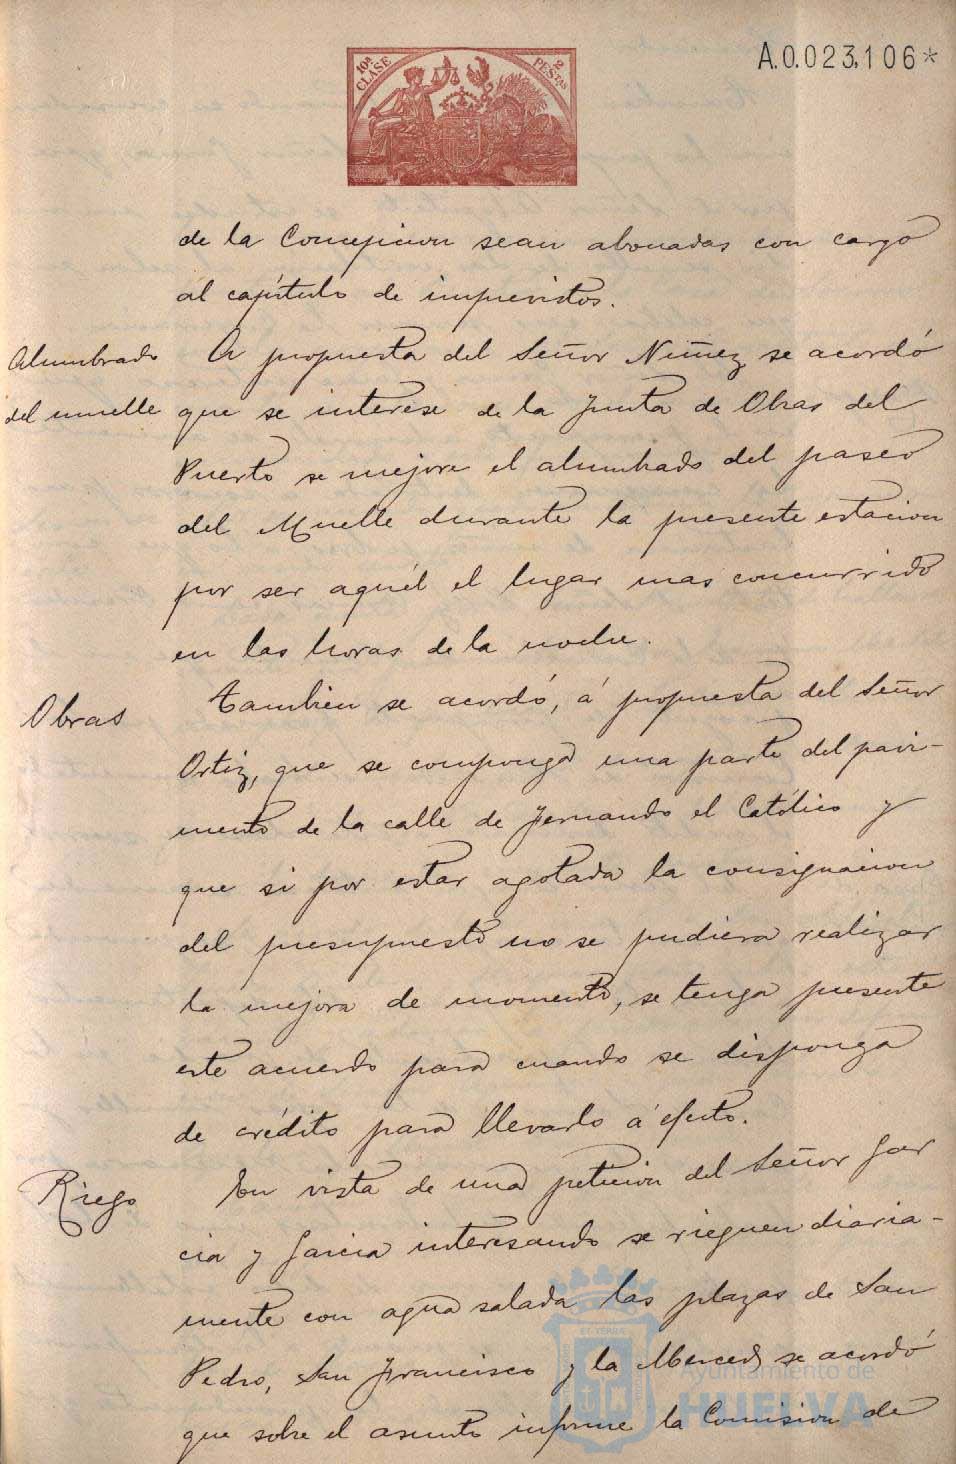 A.0.023,106*
10ª CLASE
2 PESTAS
de la Concepcion sean abonadas con cargo
al capítulo de imprevistos.
Alumbrado
del muelle
A propuesta del Señor Nuñez se acordó
que se interese de la Junta de Obras del
Puerto se mejore el alumbrado del paseo
del Muelle durante la presente estacion
por ser aquél el lugar mas concurrido
en las horas de la noche.
Obras
Tambien se acordó, á propuesta del Señor
Ortiz, que se componga una parte del pavi-
mento de la calle de Fernando el Católico y
que si por estar agotada la consignacion
del presupuesto no se pudiera realizar
la mejora de momento, se tenga presente
este acuerdo para cuando se disponga
de crédito para llevarlo á efecto.
Riego
En vista de una peticion del Señor Gar
cia y Garcia interesando se rieguen diaria-
mente con agua salada las plazas de San
Pedro, San Francisco y la Merced se acordó
que sobre el asunto informe la Comision de
Ayuntamiento de
HUELVA